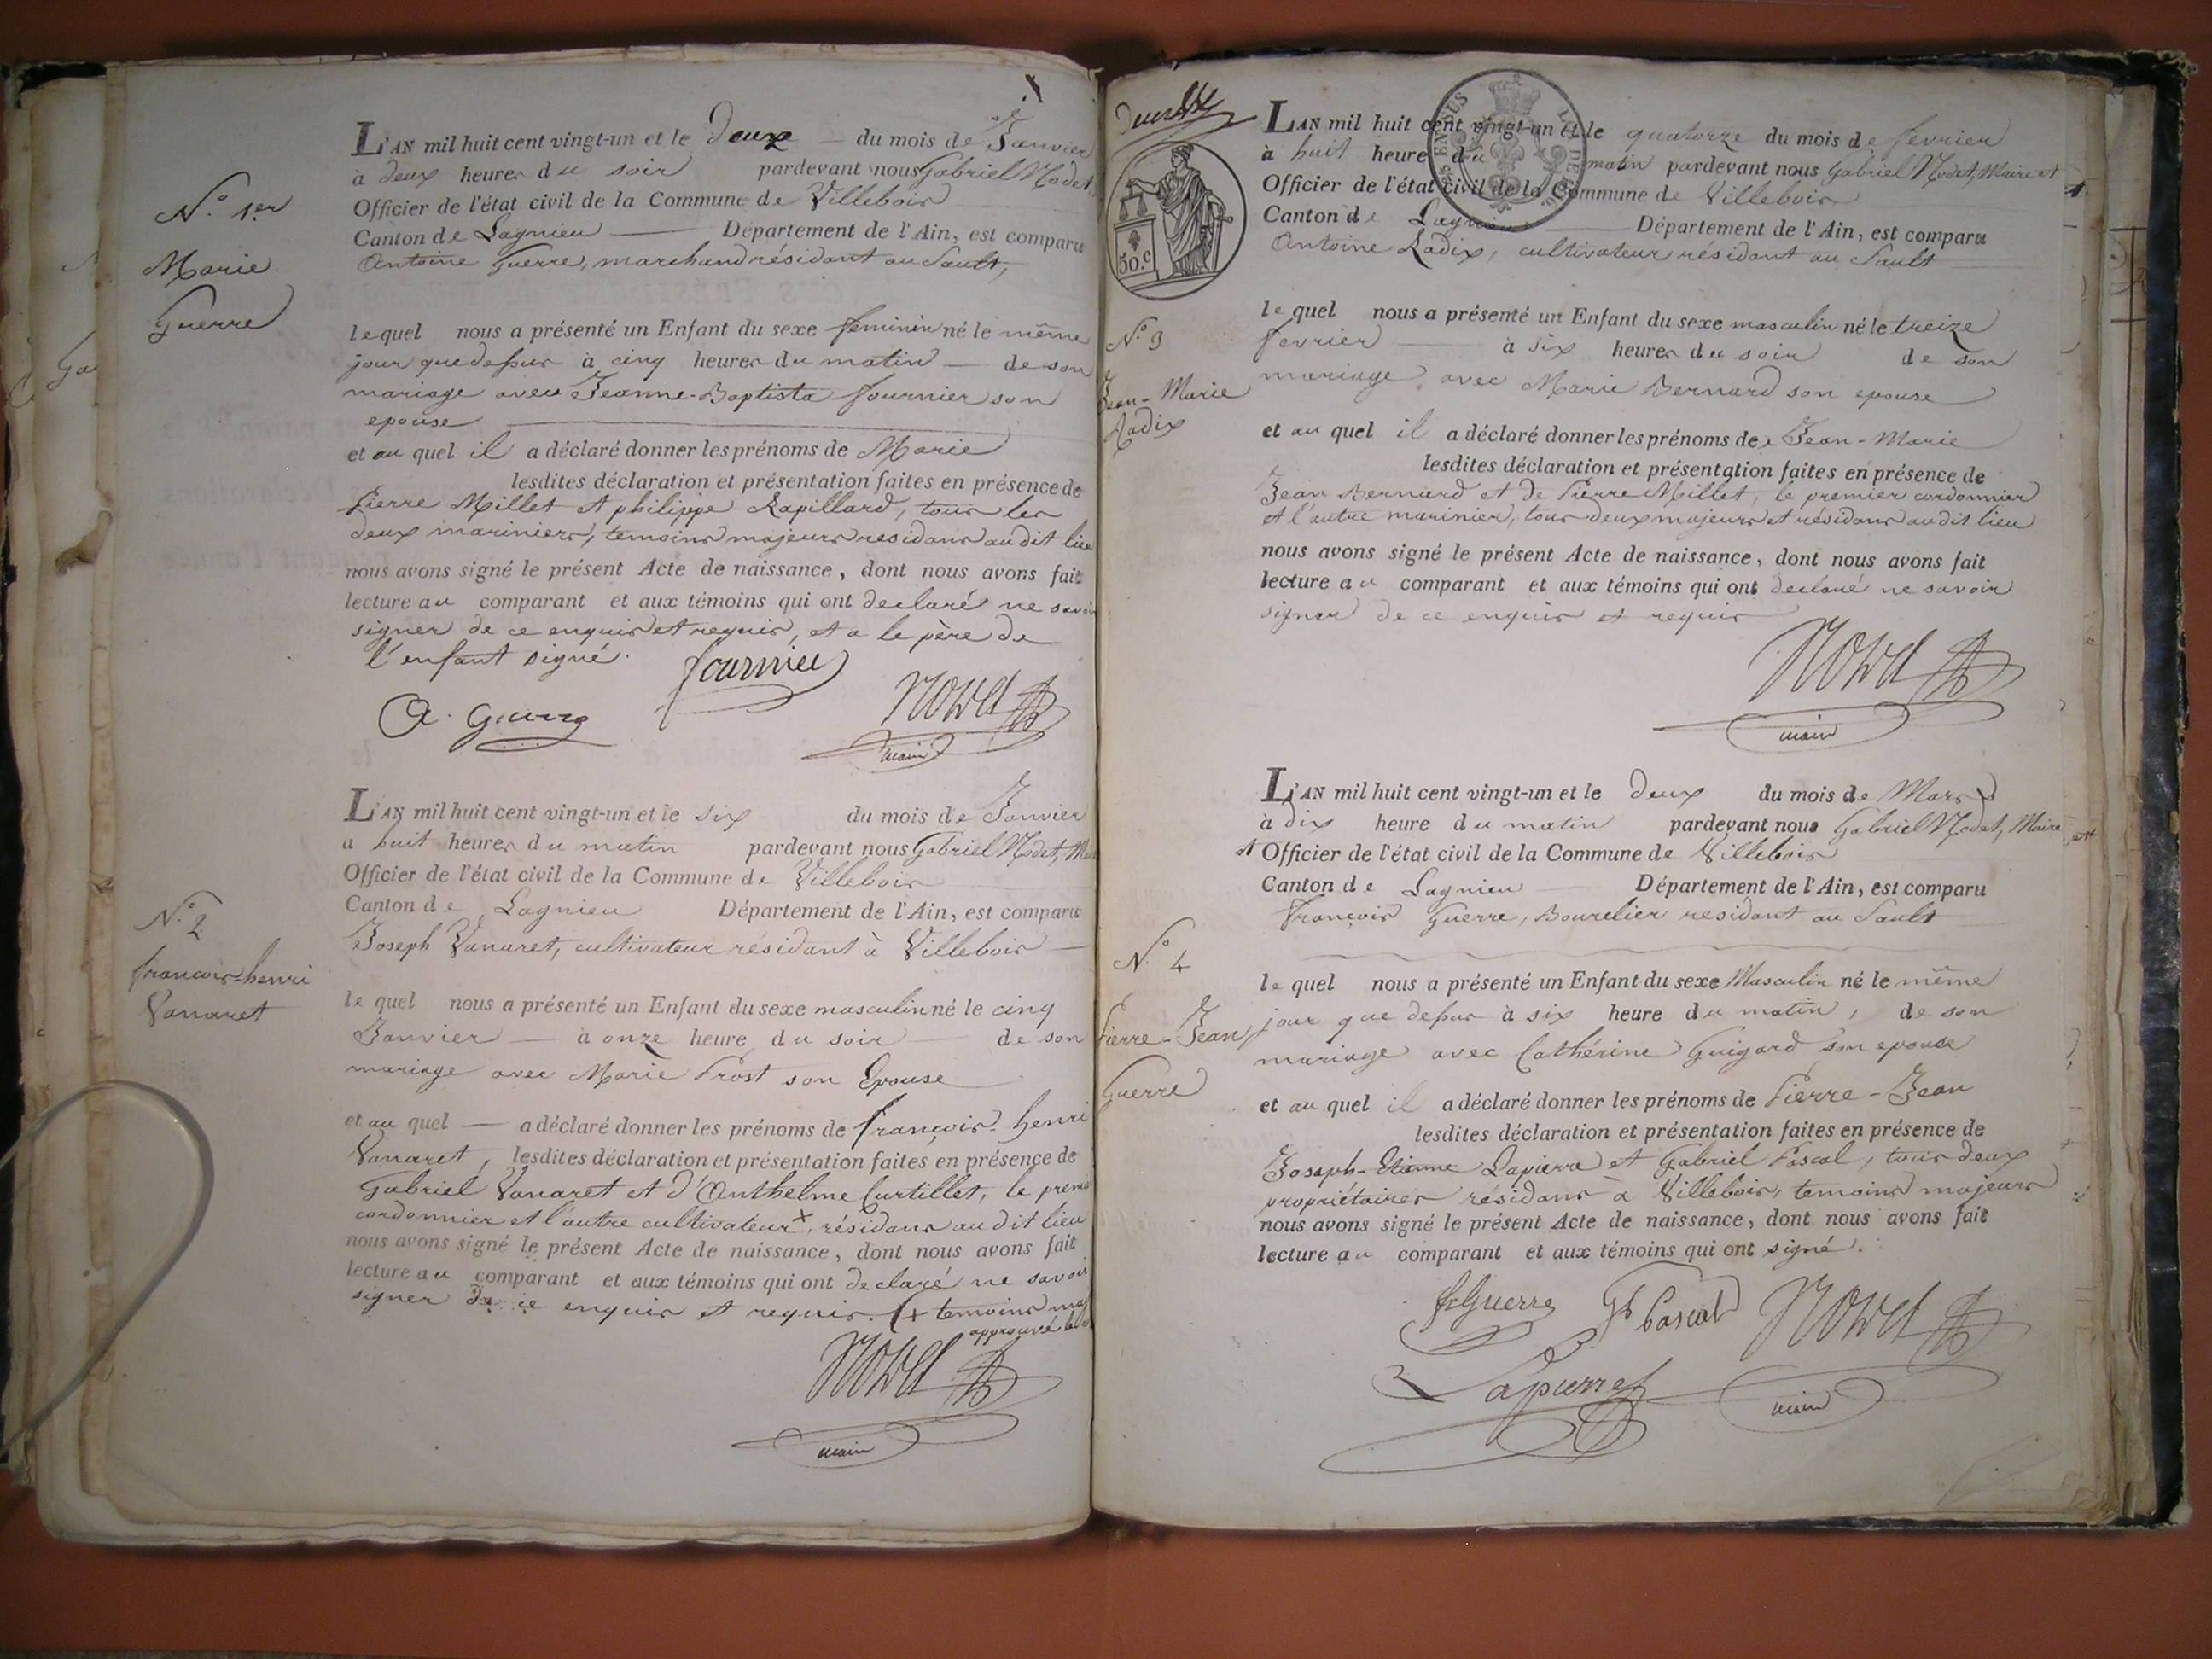 L'AN mil huit cent vingt-un et le deux du mois de Janvier
à deux heures du soir pardevant nous Gabriel Nodet,
Officier de l'état civil de la Commune de Villebois
Canton de Lagnieu Département de l'Ain, est comparu
Antoine Guerre, marchand résidant au Sault,
N.º 1.er
Marie
Guerre
lequel nous a présenté un Enfant du sexe feminin né le même
jour que dessus à cinq heures du matin de son
mariage avec Jeanne-Baptista fournier son
epouse
et au quel il a déclaré donner les prénoms de Marie
lesdites déclaration et présentation faites en présence de
Pierre Millet et philippe Rapillard, tous les
deux mariniers, temoins majeurs residans au dit lieu
nous avons signé le présent Acte de naissance, dont nous avons fait
lecture au comparant et aux témoins qui ont declaré ne savoir
signer de ce enquis et requis, et a le père de
l'enfant signé.
fournier
A. Guerre
Nodet
maire
L'AN mil huit cent vingt-un et le six du mois de Janvier
a huit heures du matin pardevant nous Gabriel Nodet,
Officier de l'état civil de la Commune de Villebois
Canton de Lagnieu Département de l'Ain, est comparu
Joseph Vanaret, cultivateur résidant à Villebois
N.º 2
francois-henri
Vanaret
le quel nous a présenté un Enfant du sexe masculin né le cinq
Janvier à onze heure du soir de son
mariage avec Marie Prost son Epouse
et au quel a déclaré donner les prénoms de françois-henri
Vanaret, lesdites déclaration et présentation faites en présence de
Gabriel Vanaret et d'Anthelme Curtillet, le premier
cordonnier et l'autre cultivateur +, résidans au dit lieu
nous avons signé le présent Acte de naissance, dont nous avons fait
lecture au comparant et aux témoins qui ont declaré ne savoir
signer de ce enquis et requis. (+ temoins maj
approuvé
Nodet
maire
50.c
L'AN mil huit cent vingt-un et le quatorze du mois de fevrier
à huit heure du matin pardevant nous Gabriel Nodet, Maire et
Officier de l'état civil de la Commune de Villebois
Canton de Lagnieu Département de l'Ain, est comparu
Antoine Radix, cultivateur résidant au Sault
N.º 3
Jean-Marie
Radix
le quel nous a présenté un Enfant du sexe masculin né le treize
fevrier à six heures du soir de son
mariage avec Marie Bernard son epouse
et au quel il a déclaré donner les prénoms de Jean-Marie
lesdites déclaration et présentation faites en présence de
Jean Bernard et de Pierre Millet, le premier cordonnier
et l'autre marinier, tous deux majeurs et résidans au dit lieu
nous avons signé le présent Acte de naissance, dont nous avons fait
lecture au comparant et aux témoins qui ont declaré ne savoir
signer de ce enquis et requis
Nodet
maire
L'AN mil huit cent vingt-un et le deux du mois de Mars
à dix heure du matin pardevant nous Gabriel Nodet, Maire et
Officier de l'état civil de la Commune de Villebois
Canton de Lagnieu Département de l'Ain, est comparu
François Guerre, Bourelier residant au Sault
N.º 4
Pierre-Jean
Guerre
le quel nous a présenté un Enfant du sexe Masculin né le même
jour que dessus à six heure du matin, de son
mariage avec Cathérine Guigard son epouse
et au quel il a déclaré donner les prénoms de Pierre-Jean
lesdites déclaration et présentation faites en présence de
Joseph-Etienne Lapierre et Gabriel Pascal, tous deux
propriétaires résidans à Villebois, temoins majeurs
nous avons signé le présent Acte de naissance, dont nous avons fait
lecture au comparant et aux témoins qui ont signé.
fs Guerre
Gl Pascal
Nodet
Lapierre
maire